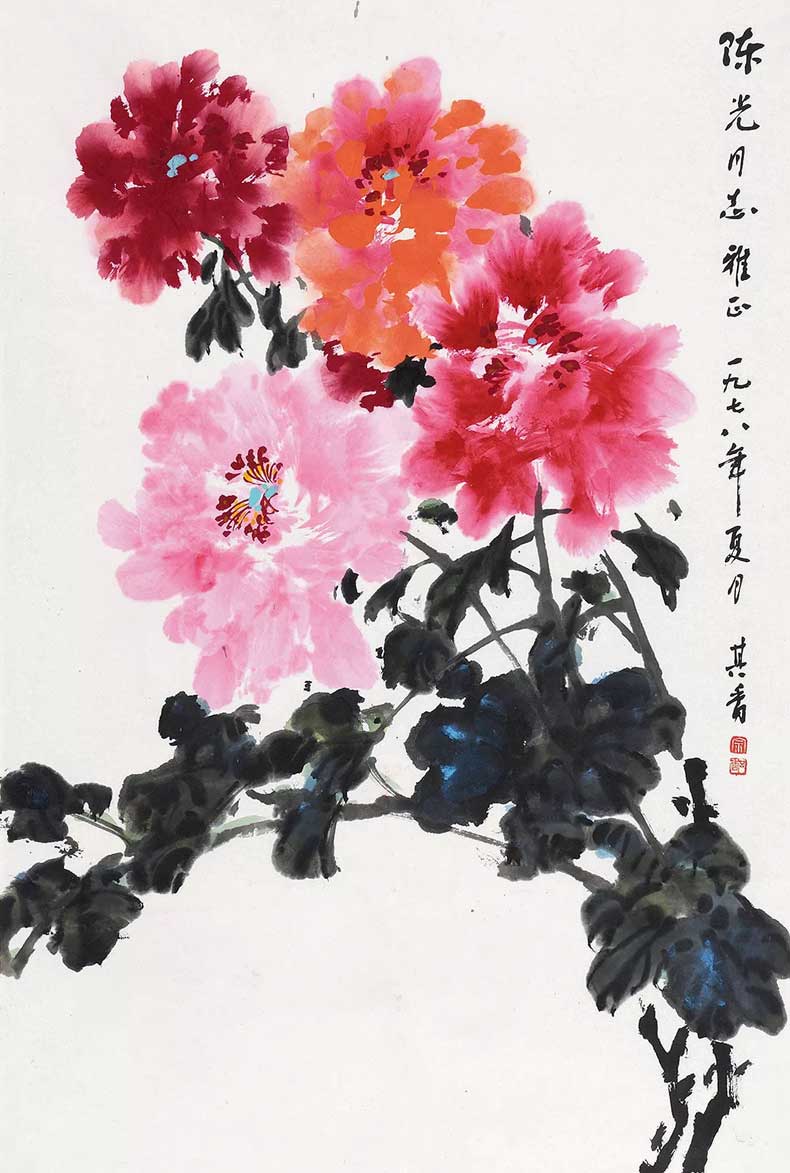 陈光同志雅正 一九七八年夏月 其香